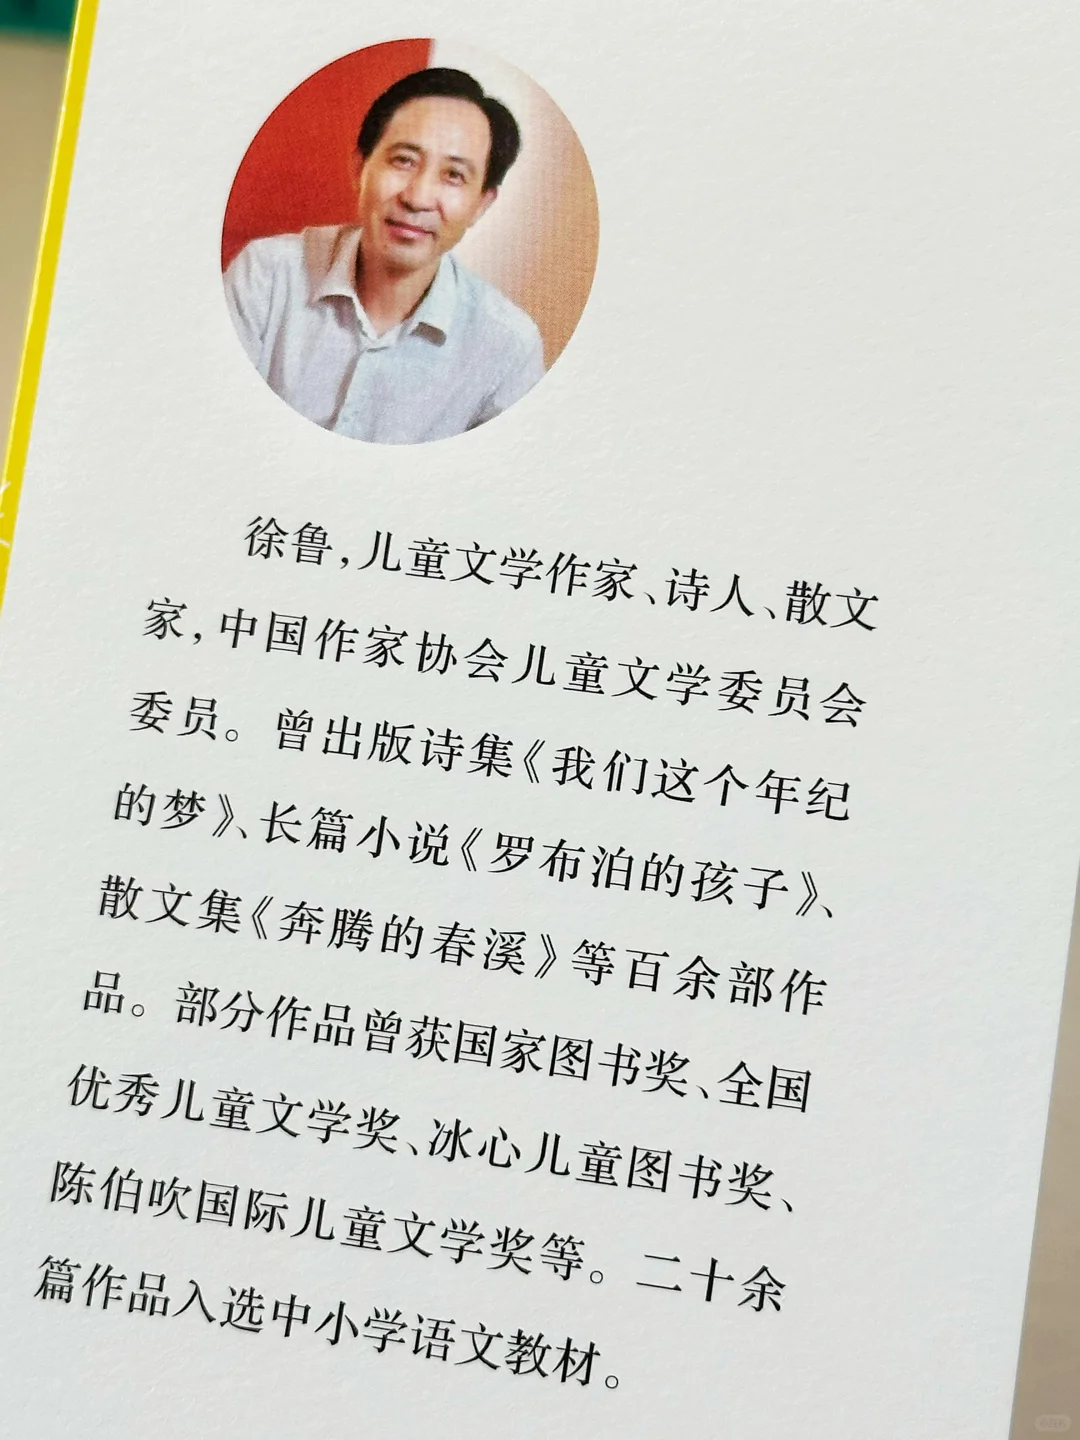 徐鲁,儿童文学作家、诗人、散文
家,中国作家协会儿童文学委员会
委员。曾出版诗集《我们这个年纪
的梦》、长篇小说《罗布泊的孩子》、
散文集《奔腾的春溪》等百余部作
品。部分作品曾获国家图书奖、全国
优秀儿童文学奖、冰心儿童图书奖、
陈伯吹国际儿童文学奖等。二十余
篇作品入选中小学语文教材。